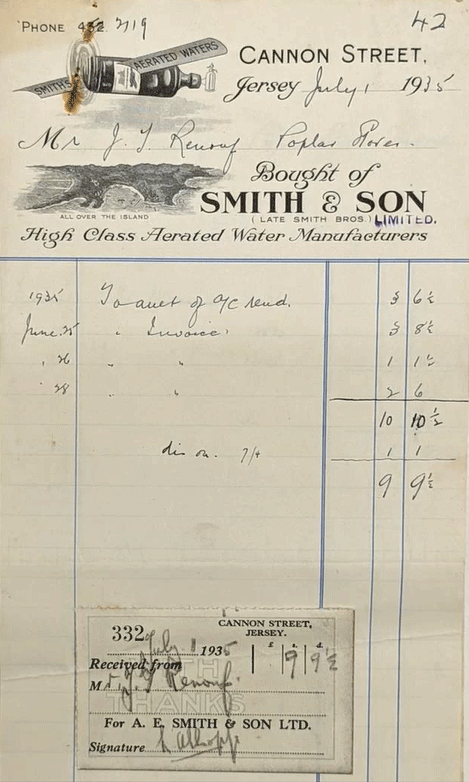 PHONE 432 2719 42
SMITHS AERATED WATERS
CANNON STREET,
Jersey July 1 1935
Mr J. T Renouf Poplar Stores.
ALL OVER THE ISLAND
Bought of
SMITH & SON
(LATE SMITH BROS.) LIMITED.
High Class Aerated Water Manufacturers
1935 To amt of a/c rend. 3 6½
June 25 " Invoice 3 8½
" 26 " " 1 1½
" 28 " " 2 6
10 10½
dis on 7/4 1 1
9 9½
CANNON STREET,
JERSEY.
332 July 1 1935 £ s d
Received from 9 9½
Mr J. T Renouf
WITH THANKS
For A. E. SMITH & SON LTD.
Signature